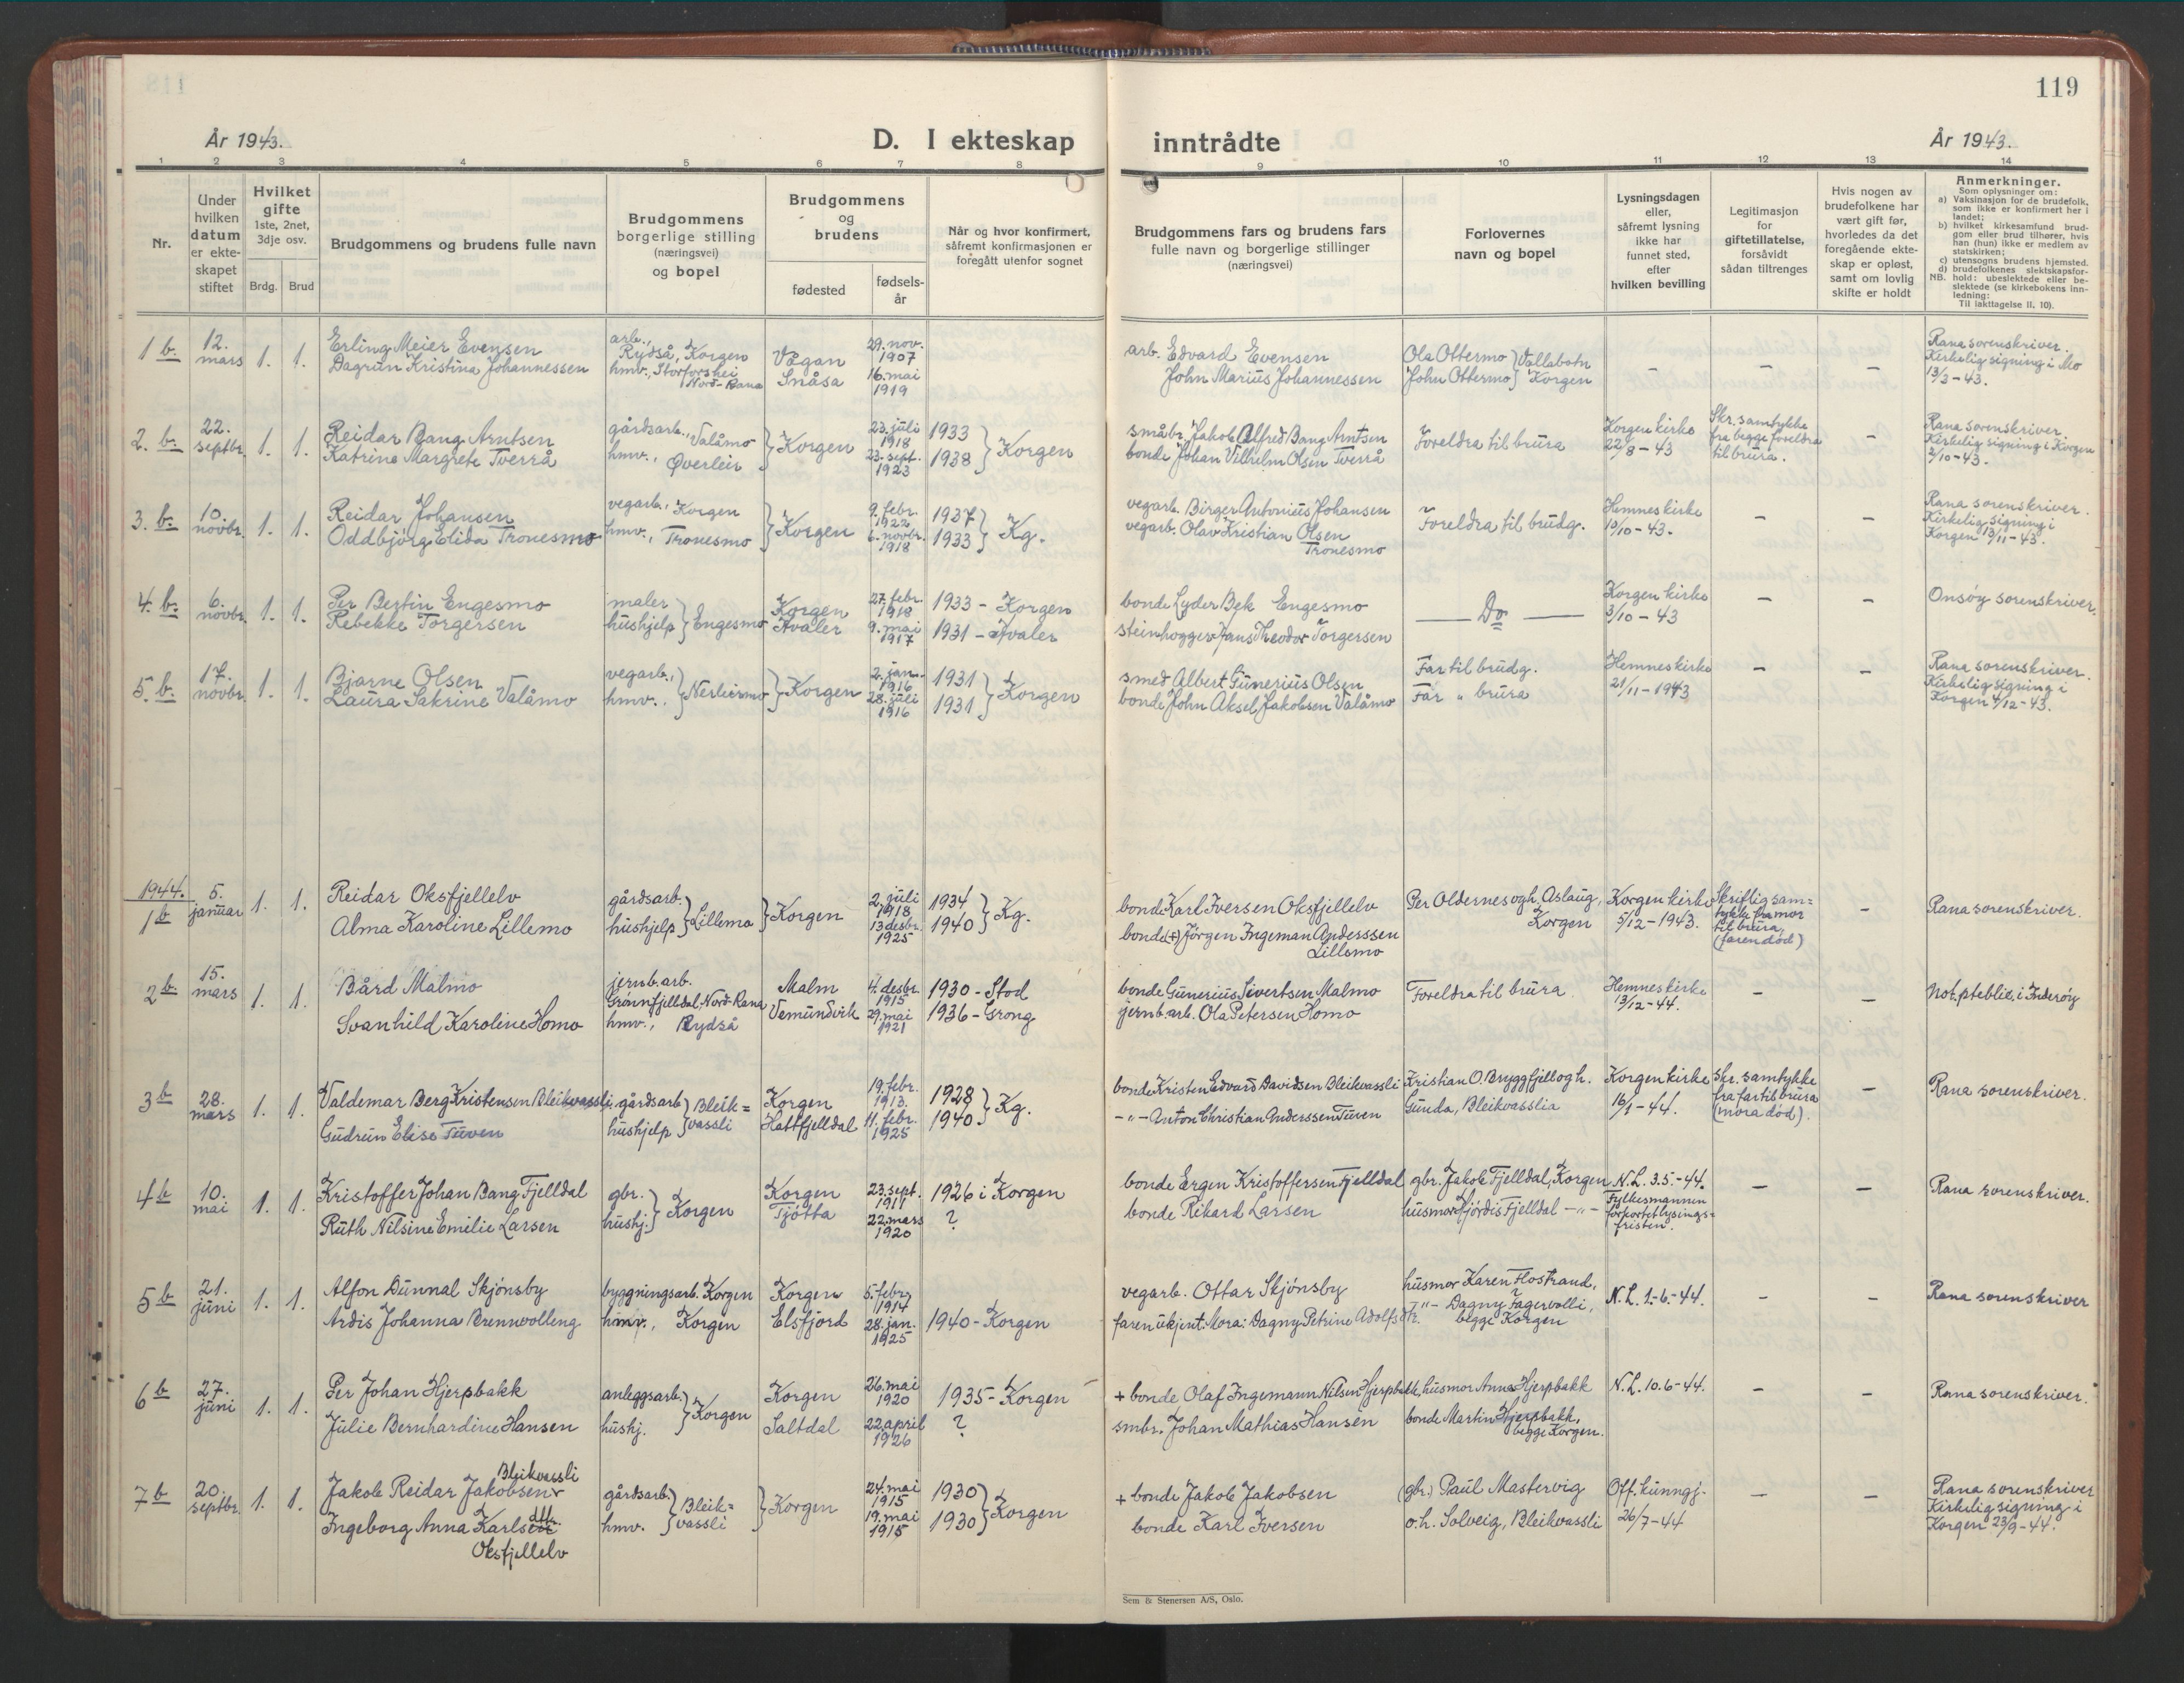 119
År 1943.
D. I ekteskap inntrådte
År 1943.
1 2 3 4 5 6 7 8 9 10 11 12 13 14
Nr.
Under hvilken datum er ekteskapet stiftet
Hvilket gifte 1ste, 2net, 3dje osv.
Brdg. Brud
Brudgommens og brudens fulle navn
Brudgommens borgerlige stilling (næringsvei) og bopel
Brudgommens og brudens
fødested
fødselsår
Når og hvor konfirmert, såfremt konfirmasjonen er foregått utenfor sognet
Brudgommens fars og brudens fars fulle navn og borgerlige stillinger (næringsvei)
Forlovernes navn og bopel
Lysningsdagen eller, såfremt lysning ikke har funnet sted, efter hvilken bevilling
Legitimasjon for giftetillatelse, forsåvidt sådan tiltrenges
Hvis nogen av brudefolkene har vært gift før, hvorledes da det foregående ekteskap er opløst, samt om lovlig skifte er holdt
Anmerkninger.
Som oplysninger om:
a) Vaksinasjon for de brudefolk, som ikke er konfirmert her i landet;
b) hvilket kirkesamfund brudgom eller brud tilhører, hvis han (hun) ikke er medlem av statskirken;
c) utensogns brudens hjemsted.
d) brudefolkenes slektskapsforhold: ubeslektede eller beslektede (se kirkebokens innledning:
NB. Til iakttagelse II, 10).
1 b. 12. mars 1. 1. Erling Meier Evensen arb., Rydså, Korgen Vågan 29. nov. 1907 arb. Edvard Evensen Ola Ottermo } Vallabotn – – – Rana sorenskriver.
Dagrun Kristina Johannessen hmv., Storforshei Nord-Rana Snåsa 16. mai 1919 John Marius Johannessen John Ottermo } Korgen Kirkelig signing i Mo 13/3-43.
2. b. 22. septbr. 1. 1. Reidar Bang Arntsen gårdsarb., Valåmo } Korgen 23. juli 1918 1933 } Korgen småbr. Jakob Alfred Bang Arntsen Foreldra til brura Korgen kirke 22/8-43 Skr. samtykke fra begge foreldra til brura. – Rana sorenskriver
Katrine Margrete Tverrå hmv., Øverleir 23. sept. 1923 1938 bonde Johan Vilhelm Olsen Tverrå Kirkelig signing i Korgen 2/10-43.
3. b. 10. novbr. 1. 1. Reidar Johansen vegarb., Korgen } Korgen 9. febr. 1922 1937 } Kg. vegarb. Birger Antonius Johansen Foreldra til brudg. Hemnes kirke 10/10-43. – – Rana sorenskriver.
Oddbjörg Elida Tronesmo hmv., Tronesmo 6. novbr. 1918 1933 vegarb. Olav Kristian Olsen Tronesmo Kirkelig signing i Korgen 13/11-43.
4. b. 6. novbr. 1. 1. Per Bertin Engesmo maler } Engesmo Korgen 27. febr. 1918 1933 - Korgen bonde Lyder Bek Engesmo Do Korgen kirke 3/10-43 – – Onsøy sorenskriver.
Rebekke Torgersen hushjelp Hvaler 9. mai 1917 1931 - Hvaler steinhogger Hans Theodor Torgersen
5. b. 17. novbr. 1. 1. Bjarne Olsen vegarb., } Nerleirmo } Korgen 2. jan. 1916 1931 } Korgen smed Albert Gunerius Olsen Far til brudg. Hemnes kirke 21/11-1943 – – Rana sorenskriver.
Laura Sakrine Valåmo hmv.. 28. juli 1916 1931 bonde John Aksel Jakobsen Valåmo Far " brura Kirkelig signing i Korgen 4/12-43.
1944.
1 b 5. januar 1. 1. Reidar Oksfjellelv gårdsarb. } Lillemo } Korgen 2. juli 1918 1934 } Kg. bonde Karl Iversen Oksfjellelv Per Oldernes og h. Aslaug, Korgen Korgen kirke 5/12-1943. Skriftlig samtykke fra mor til brura, (faren död) – Rana sorenskriver.
Alma Karoline Lillemo hushjelp 13 desbr. 1925 1940 bonde (+) Jörgen Ingeman Anderssen Lillemo
2 b. 15. mars 1. 1. Bård Malmo jernb.arb. Grønnfjelldal, Nord-Rana Malm 4. desbr. 1915 1930 - Stod bonde Gunerius Sivertsen Malmo Foreldra til brura. Hemnes kirke 13/12-44. – – Not. p[...] i Inderøy
Svanhild Karoline Homo hmv., Rydså Vemundvik 29. mai 1921 1936 - Grong jernb.arb. Ola Petersen Homo
3 b 28. mars 1. 1. Valdemar Berg Kristensen Bleikvassli gårdsarb } Bleikvassli Korgen 19. febr. 1913. 1928 } Kg. bonde Kristen Edvard Davidsen Bleikvassli Kristian O. Bryggfjell og h. Gunda, Bleikvasslia Korgen kirke 16/1-44. Skr. samtykke fra far til brura (mora död). – Rana sorenskriver.
Gudrun Elise Tuven hushjelp Hattfjelldal 11. febr. 1925 1940 -"- Anton Christian Anderssen Tuven
4 b 10. mai 1. 1. Kristoffer Johan Bang Fjelldal gbr. } Korgen Korgen 23. sept. 1911 1926 i Korgen bonde Ergen Kristoffersen Fjelldal gbr. Jakob Fjelldal, Korgen N.L. 3.5.-44. Fylkesmannen forkortet lysingsfristen. – – Rana sorenskriver.
Ruth Nilsine Emilie Larsen hushj. Tjötta 22. mars 1920 ? bonde Rikard Larsen husmor Hjördis Fjelldal -"-
5 b 21. juni 1. 1. Alfon Dunnal Skjónsby byggningsarb. Korgen Korgen 5. febr. 1914 vegarb. Ottar Skjónsby husmor Karen Flostrand, N.L. 1.-6.-44. – – Rana sorenskriver
Ardis Johanna Brennvolleng hmv., Korgen Elsfjord 28. jan. 1925 1940 - Korgen faren ukjent. Mora: Dagny Petrine Adolfsdtr. -"- Dagny Fagervolli, begge Korgen
6 b 27. juni 1. 1. Per Johan Hjerpbakk anleggsarb. } Korgen Korgen 26. mai 1920 1935 - Korgen + bonde Olaf Ingemann Nilsen Hjerpbakk husmor Anna Hjerpbakk N.L. 10.6-44. – – Rana sorenskriver.
Julie Bernhardine Hansen hushj. Saltdal 22. april 1926 ? smbr. Johan Mathias Hansen bonde Martin Hjerpbakk, begge Korgen.
7 b 20. septbr. 1. 1. Jakob Reidar Jakobsen Bleikvassli gårdsarb. } Bleikvassli } Korgen 24. mai 1915 1930 } Korgen + bonde Jakob Jakobsen (gbr.) Paul Mastervig Off. kunngj. 26/7-44 – – Rana sorenskriver
Ingeborg Anna Karlsdtr. Oksfjellelv hmv. 19. mai 1915 1930 bonde Karl Iversen o.h. Solveig, Bleikvassli Kirkelig signing i Korgen 23/9-44.
Sem & Stenersen A/S, Oslo.